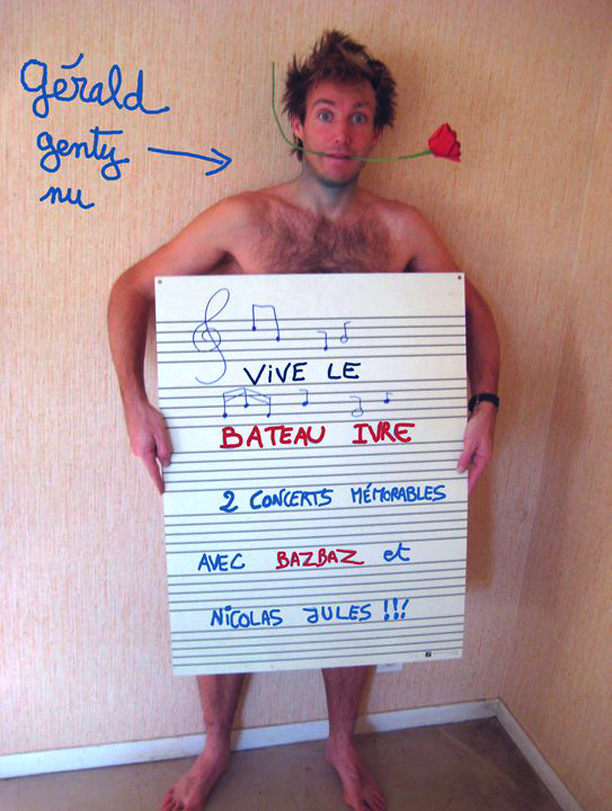 Gérald
genty
nu
ViVE LE
BATEAU IVRE
2 CONCERTS MÉMORABLES
AVEC BAZBAZ et
NiCOLAS JULES !!!